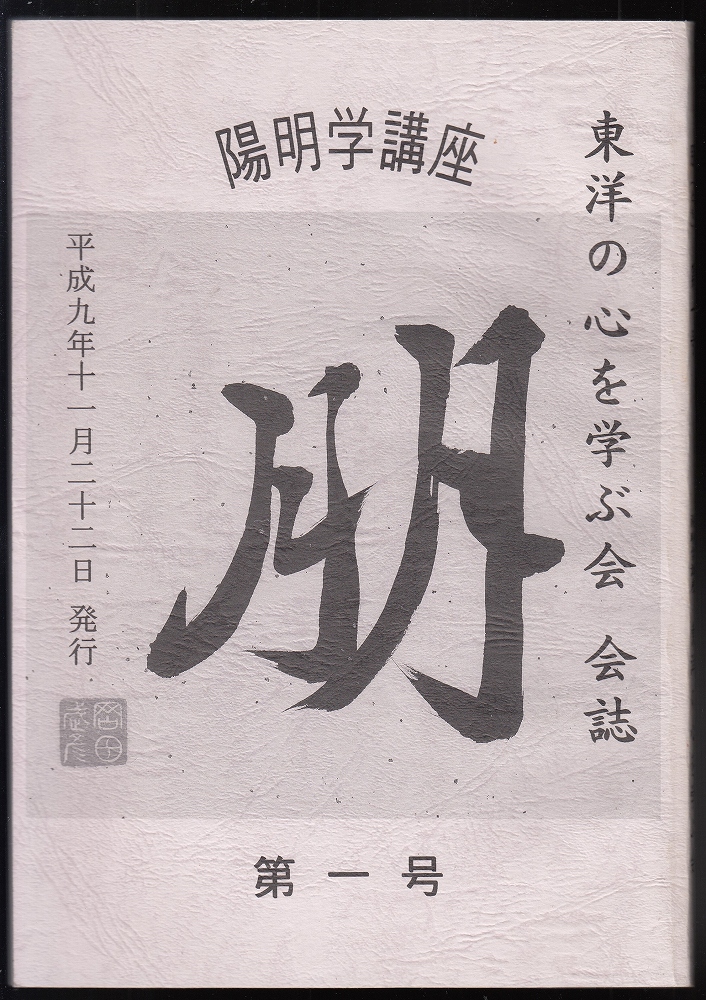 陽明学講座
東洋の心を学ぶ会 会誌
朋
平成九年十一月二十二日 発行
岡田武彦
第一号